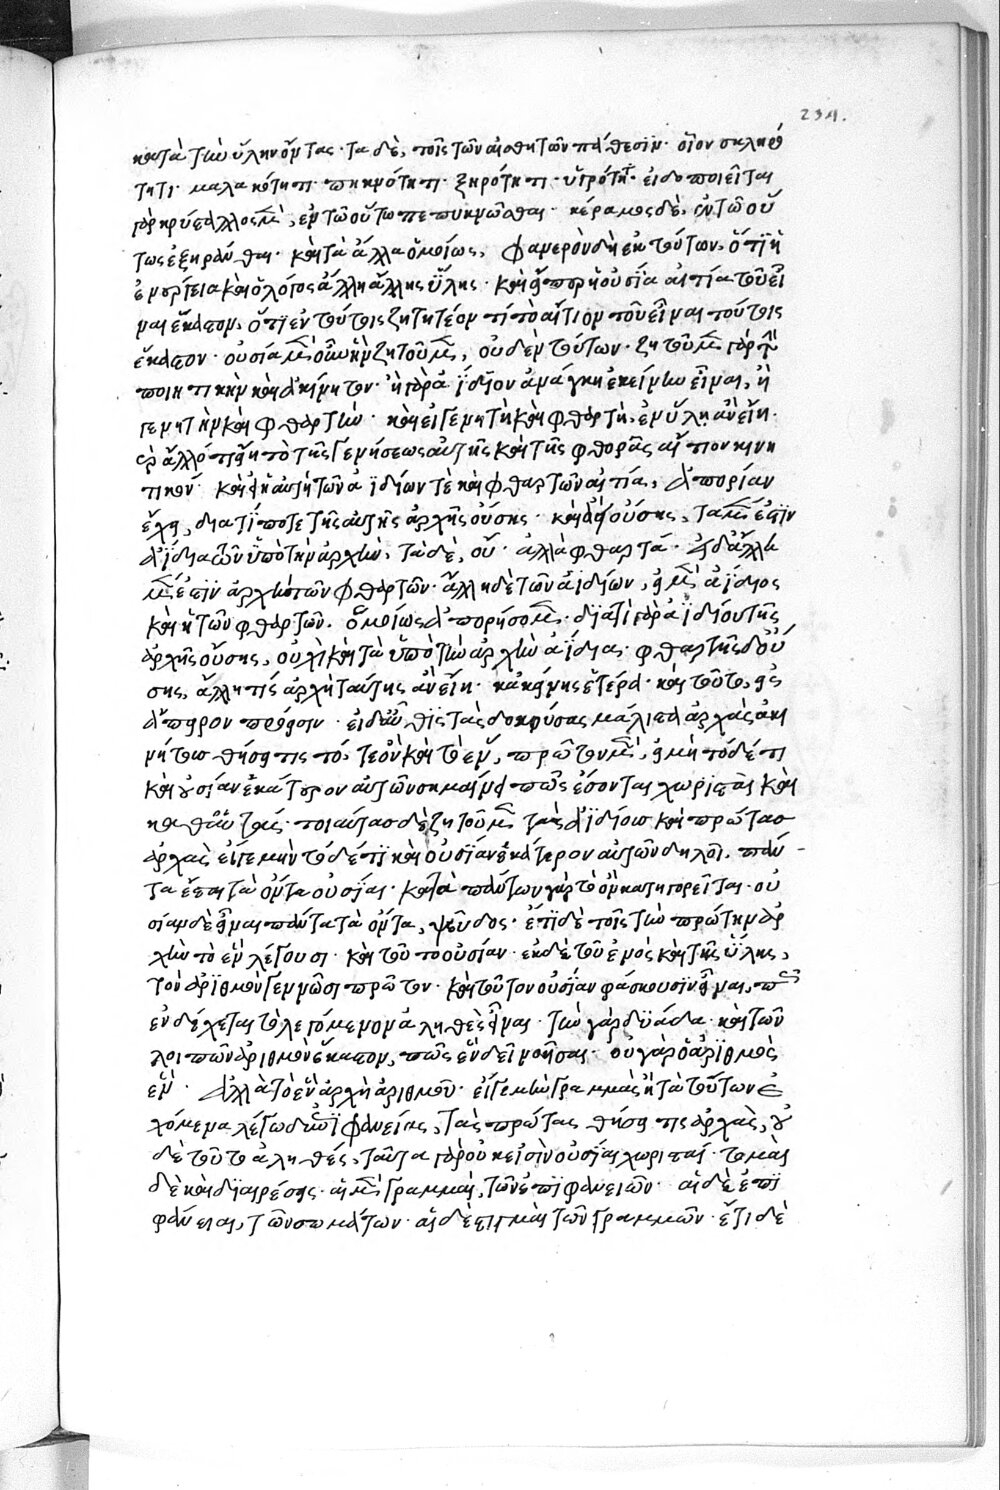 234.
κατὰ τὴν ὕλην ὄντας· τὰ δὲ, τοῖς τῶν αἰσθητῶν πάθεσιν· οἷον σκληρό
τητι· μαλακότητι· πυκνότητι· ξηρότητι· ὑγρότητι· εἰδοποιεῖται
γὰρ κρύσταλλος μὲν, ἐν τῶ οὕτω πεπυκνῶσθαι· κέραμος δὲ, ἐν τῶ οὕ
τως ἐξηράνθαι· καὶ τὰ ἄλλα ὁμοίως, φανερὸν δὴ ἐκ τούτων, ὅτι ἡ
ἐνέργεια καὶ ὁ λόγος ἄλλη ἄλλης ὕλης· καὶ εἴπερ ἡ οὐσία αἰτία τοῦ εἶ
ναι ἕκαστον, ὅτι ἐν τούτοις ζητητέον τί τὸ αἴτιον τοῦ εἶναι τούτοις
ἕκαστον· οὐσία μὲν οὖν ἣν ζητοῦμεν, οὐδὲν τούτων· ζητοῦμεν γὰρ τὴν
ποιητικὴν καὶ ἀκίνητον· ἢ γὰρ ἀΐδιον ἀνάγκη ἐκείνην εἶναι, ἢ
γενητὴν καὶ φθαρτήν· καὶ εἰ γενητὴ καὶ φθαρτὴ, ἐν ὕλη ἂν εἴη·
ἄλλό τι εἴη τὸ τῆς γενήσεως αὐτῆς καὶ τῆς φθορᾶς αἴτιον κινη
τικόν· καὶ εἰ ἡ αὐτὴ τῶν ἀϊδίων τὲ καὶ φθαρτῶν αἰτία, ἀπορίαν
ἔχει, διατί ποτε τῆς αὐτῆς ἀρχῆς οὔσης· καὶ οὔσης, τὰ μέν ἐστιν
ἀΐδια τῶν ὑπὸ τὴν ἀρχὴν, τὰ δὲ, οὔ· ἀλλὰ φθαρτά· εἰ δ' ἄλλη
μέν ἐστιν ἀρχὴ τῶν φθαρτῶν· ἄλλη δὲ τῶν ἀϊδίων, εἰ μὲν ἀΐδιος
καὶ ἡ τῶν φθαρτῶν· ὁμοίως ἀπορήσομεν· διατί γὰρ ἀϊδίου τῆς
ἀρχῆς οὔσης, οὐχὶ καὶ τὰ ὑπὸ τὴν ἀρχὴν ἀΐδια· φθαρτῆς δ' οὔ
σης, ἄλλη τίς ἀρχὴ ταύτης ἂν εἴη· κἀκείνης ἑτέρα· καὶ τοῦτο, εἰς
ἄπειρον πρόεισιν· εἰ δ' αὖθις τὰς δοκούσας μάλιστα ἀρχὰς ἀκι
νήτους θήσει τις τό, τε ὂν καὶ τὸ ἓν, πρῶτον μὲν, εἰ μὴ τόδέ τι
καὶ οὐσίαν ἑκάτερον αὐτῶν σημαίνει πῶς ἔσονται χωρισταὶ καὶ
καθ' αὑτάς· τοιαύτας δὲ ζητοῦμεν τὰς ἀϊδίους καὶ πρώτας
ἀρχὰς εἴγε μὴν τόδέ τι καὶ οὐσίαν ἑκάτερον αὐτῶν δηλοῖ, πάν-
τα ἔσται τὰ ὄντα οὐσίαι· κατὰ πάντων γὰρ τὸ ὂν κατηγορεῖται· οὐ
σίαν δὲ εἶναι πάντα τὰ ὄντα, ψεῦδος· ἔτι δὲ τοῖς τὴν πρώτην ἀρ
χὴν τὸ ἓν λέγουσι· καὶ τοῦτο οὐσίαν· ἐκ δὲ τοῦ ἑνὸς καὶ τῆς ὕλης,
τὸν ἀριθμὸν γεννῶσι πρῶτον· καὶ τοῦτον οὐσίαν φάσκουσιν εἶναι, πῶς
ἐνδέχεται τὸ λεγόμενον ἀληθὲς εἶναι· τὴν γὰρ δυάδα· καὶ τῶν
λοιπῶν ἀριθμῶν ἕκαστον, πῶς ἓν δεῖ νοῆσαι· οὐ γὰρ ὁ ἀριθμὸς
ἕν· ἀλλὰ τὸ ἓν ἀρχὴ ἀριθμοῦ· εἴγε μὴν γραμμὰς ἢ τὰ τούτων ἐ
χόμενα λέγω δὴ ἐπιφανείας, τὰς πρώτας θήσει τις ἀρχὰς, οὐ
δὲ τοῦτο ἀληθές, ταῦτα γὰρ οὐκ εἰσὶν οὐσίαι χωρισταί· τομαὶ
δὲ καὶ διαιρέσεις· αἱ μὲν γραμμαὶ, τῶν ἐπιφανειῶν· αἱ δὲ ἐπι
φάνειαι, τῶν σωμάτων· αἱ δὲ στιγμαὶ τῶν γραμμῶν· ἔτι δὲ